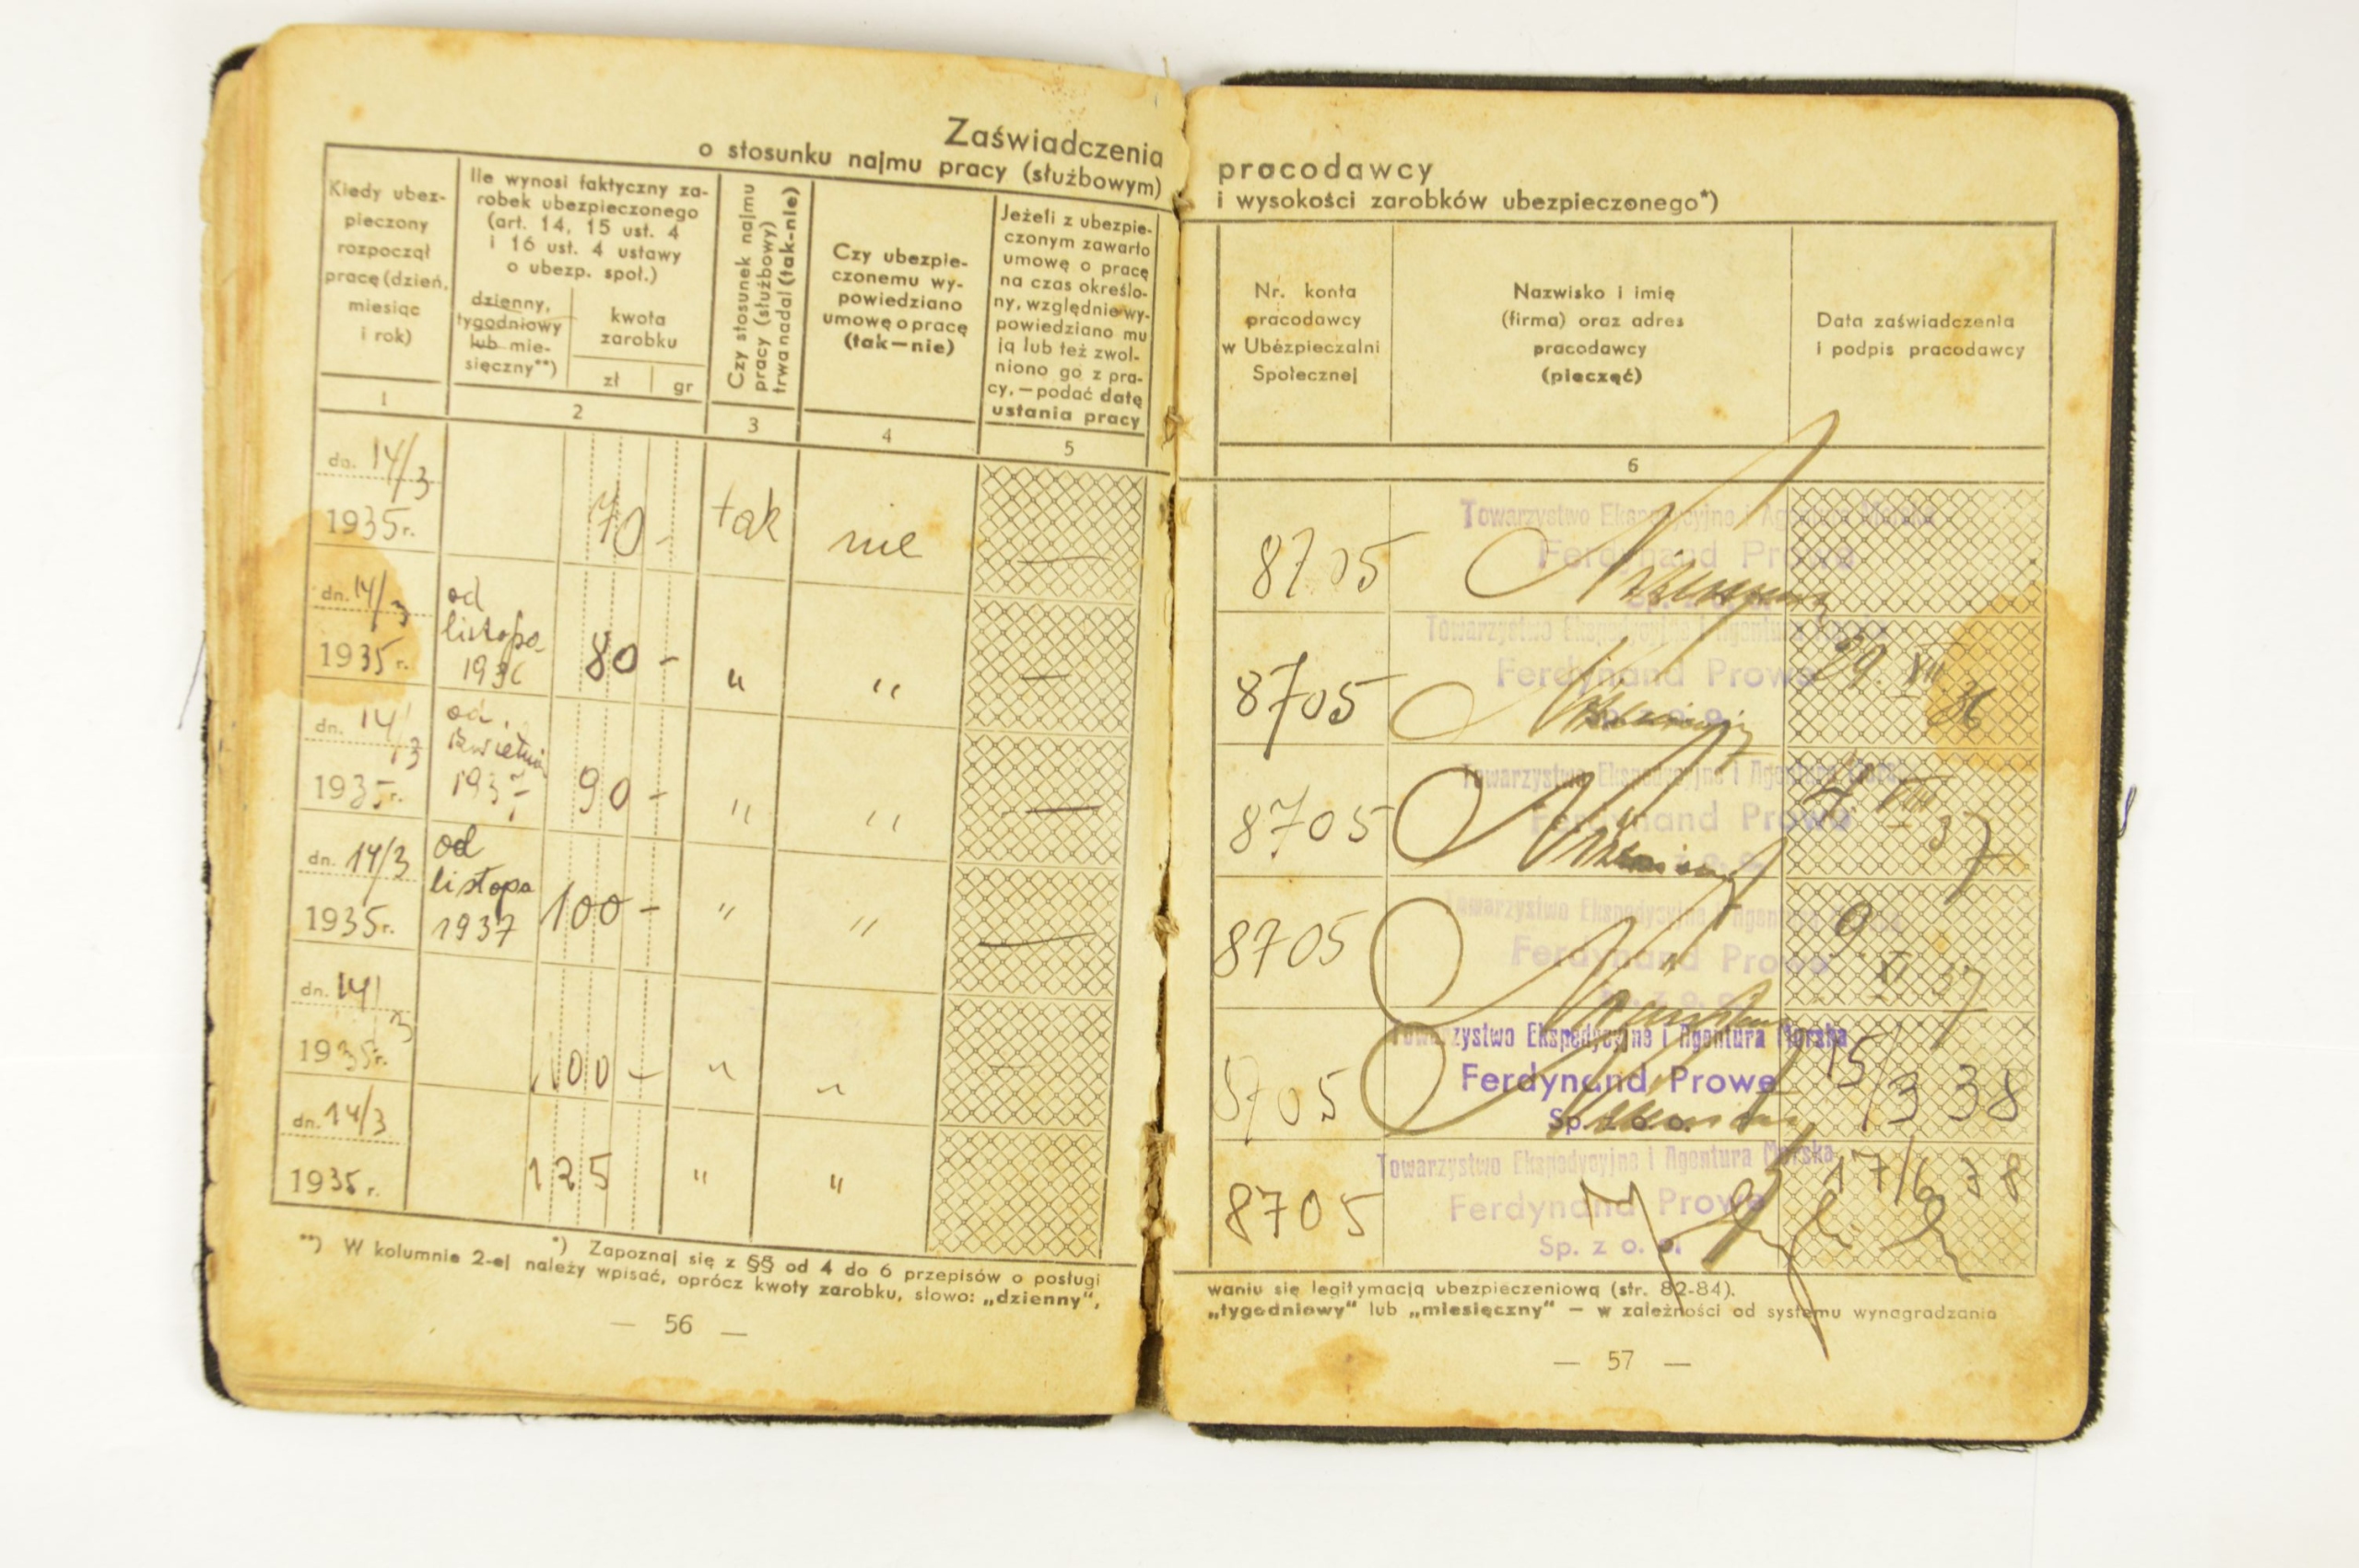 Zaświadczenia
o stosunku najmu pracy (służbowym)
Kiedy ubez-
pieczony
rozpoczął
pracę (dzień,
miesiąc
i rok)
Ile wynosi faktyczny za-
robek ubezpieczonego
(art. 14, 15 ust. 4
i 16 ust. 4 ustawy
o ubezp. społ.)
dzienny,
tygodniowy
lub mie-
sięczny**)
kwota
zarobku
zł gr
Czy stosunek najmu
pracy (służbowy)
trwa nadal (tak-nie)
Czy ubezpie-
czonemu wy-
powiedziano
umowę o pracę
(tak—nie)
Jeżeli z ubezpie-
czonym zawarto
umowę o pracę
na czas określo-
ny, względnie wy-
powiedziano mu
ją lub też zwol-
niono go z pra-
cy, — podać datę
ustania pracy
1 2 3 4 5
dn. 14/3
1935 r. 70 - tak nie —
dn. 14/3
1935 r.
od
listopa-
1936
80 - " " —
dn. 14/3
1935 r.
od
kwietnia
1937
90 - " " —
dn. 14/3
1935 r.
od
listopa
1937
100 - " " —
dn. 14/3
1935 r. 100 - " "
dn. 14/3
1935 r. 125 " "
*) Zapoznaj się z §§ od 4 do 6 przepisów o posługi
**) W kolumnie 2-ej należy wpisać, oprócz kwoty zarobku, słowo: „dzienny",
— 56 —
pracodawcy
i wysokości zarobków ubezpieczonego*)
Nr. konta
pracodawcy
w Ubezpieczalni
Społecznej
Nazwisko i imię
(firma) oraz adres
pracodawcy
(pieczęć)
Data zaświadczenia
i podpis pracodawcy
6
Towarzystwo Ekspedycyjne i Agentura Morska
8705 Ferdynand Prowe
Sp. z o. o.
Towarzystwo Ekspedycyjne i Agentura Morska
8705 Ferdynand Prowe 29. XII 36
Sp. z o. o.
Towarzystwo Ekspedycyjne i Agentura Morska
8705 Ferdynand Prowe VIII 37
Sp. z o. o.
Towarzystwo Ekspedycyjne i Agentura Morska
8705 Ferdynand Prowe 9 XI 37
Sp. z o. o.
Towarzystwo Ekspedycyjne i Agentura Morska
8705 Ferdynand Prowe 15/3 38
Sp. z o. o.
Towarzystwo Ekspedycyjne i Agentura Morska
8705 Ferdynand Prowe 17/6 38
Sp. z o. o.
waniu się legitymacją ubezpieczeniową (str. 82-84).
„tygodniowy" lub „miesięczny" — w zależności od systemu wynagradzania
— 57 —